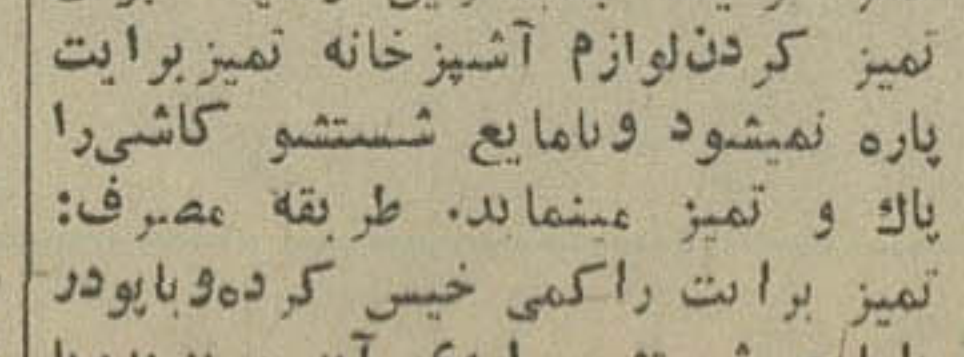 تمیز کردن لوازم آشپزخانه تمیز برایت
پاره نمیشود و با مایع شستشو کاشی را
پاك و تمیز مینماید. طریقه مصرف:
تمیز برایت را کمی خیس کرده و با پودر